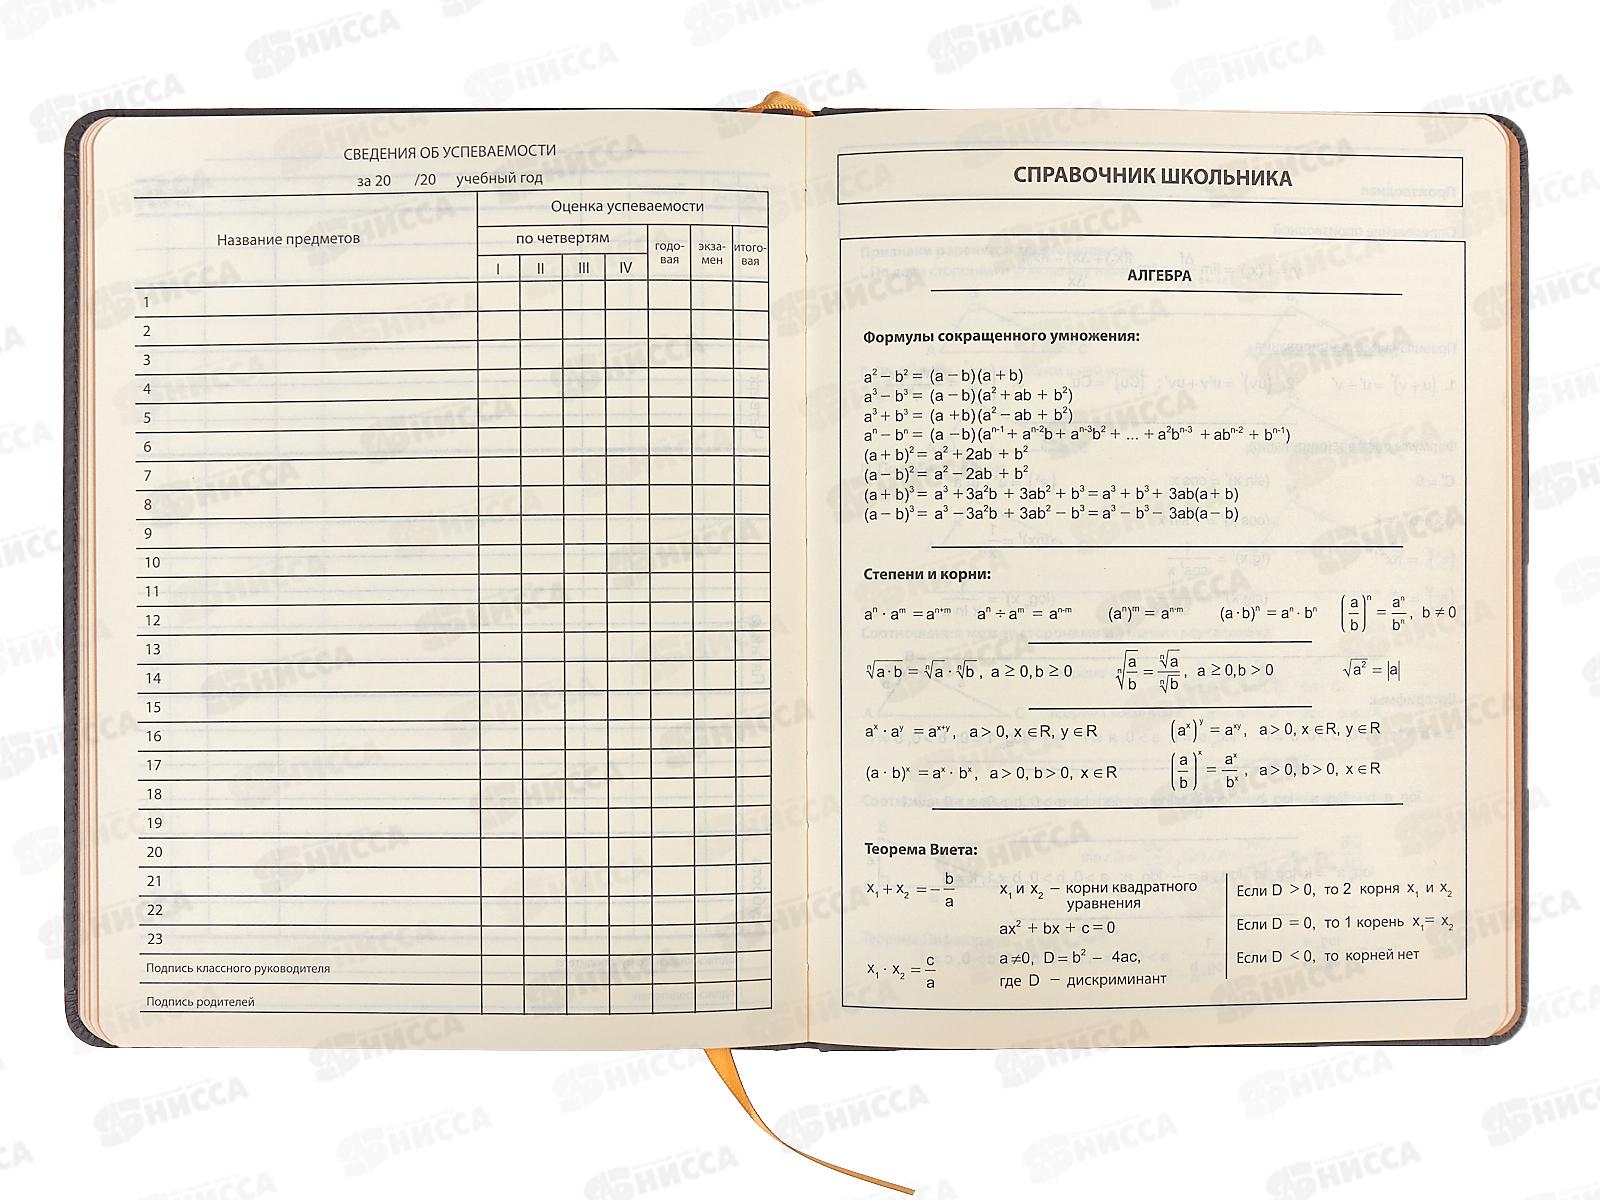 СВЕДЕНИЯ ОБ УСПЕВАЕМОСТИ
за 20 /20 учебный год
Название предметов
Оценка успеваемости
по четвертям
годо-
вая
экза-
мен
итого-
вая
I II III IV
1
2
3
4
5
6
7
8
9
10
11
12
13
14
15
16
17
18
19
20
21
22
23
Подпись классного руководителя
Подпись родителей
СПРАВОЧНИК ШКОЛЬНИКА
АЛГЕБРА
Формулы сокращенного умножения:
a² − b² = (a − b)(a + b)
a³ − b³ = (a − b)(a² + ab + b²)
a³ + b³ = (a + b)(a² − ab + b²)
aⁿ − bⁿ = (a − b)(aⁿ⁻¹ + aⁿ⁻²b + aⁿ⁻³b² + ... + a²bⁿ⁻³ + abⁿ⁻² + bⁿ⁻¹)
(a + b)² = a² + 2ab + b²
(a − b)² = a² − 2ab + b²
(a + b)³ = a³ + 3a²b + 3ab² + b³ = a³ + b³ + 3ab(a + b)
(a − b)³ = a³ − 3a²b + 3ab² − b³ = a³ − b³ − 3ab(a − b)
Степени и корни:
aⁿ · aᵐ = aⁿ⁺ᵐ aⁿ ÷ aᵐ = aⁿ⁻ᵐ (aⁿ)ᵐ = aⁿ·ᵐ (a · b)ⁿ = aⁿ · bⁿ (a/b)ⁿ = aⁿ/bⁿ, b ≠ 0
ⁿ√(a · b) = ⁿ√a · ⁿ√b, a ≥ 0, b ≥ 0 ⁿ√(a/b) = ⁿ√a/ⁿ√b, a ≥ 0, b > 0 √a² = |a|
aˣ · aʸ = aˣ⁺ʸ, a > 0, x ∈ R, y ∈ R (aˣ)ʸ = aˣʸ, a > 0, x ∈ R, y ∈ R
(a · b)ˣ = aˣ · bˣ, a > 0, b > 0, x ∈ R (a/b)ˣ = aˣ/bˣ, a > 0, b > 0, x ∈ R
Теорема Виета:
x₁ + x₂ = − b/a
x₁ · x₂ = c/a
x₁ и x₂ − корни квадратного
уравнения
ax² + bx + c = 0
a ≠ 0, D = b² − 4ac,
где D − дискриминант
Если D > 0, то 2 корня x₁ и x₂
Если D = 0, то 1 корень x₁ = x₂
Если D < 0, то корней нет
НИССА